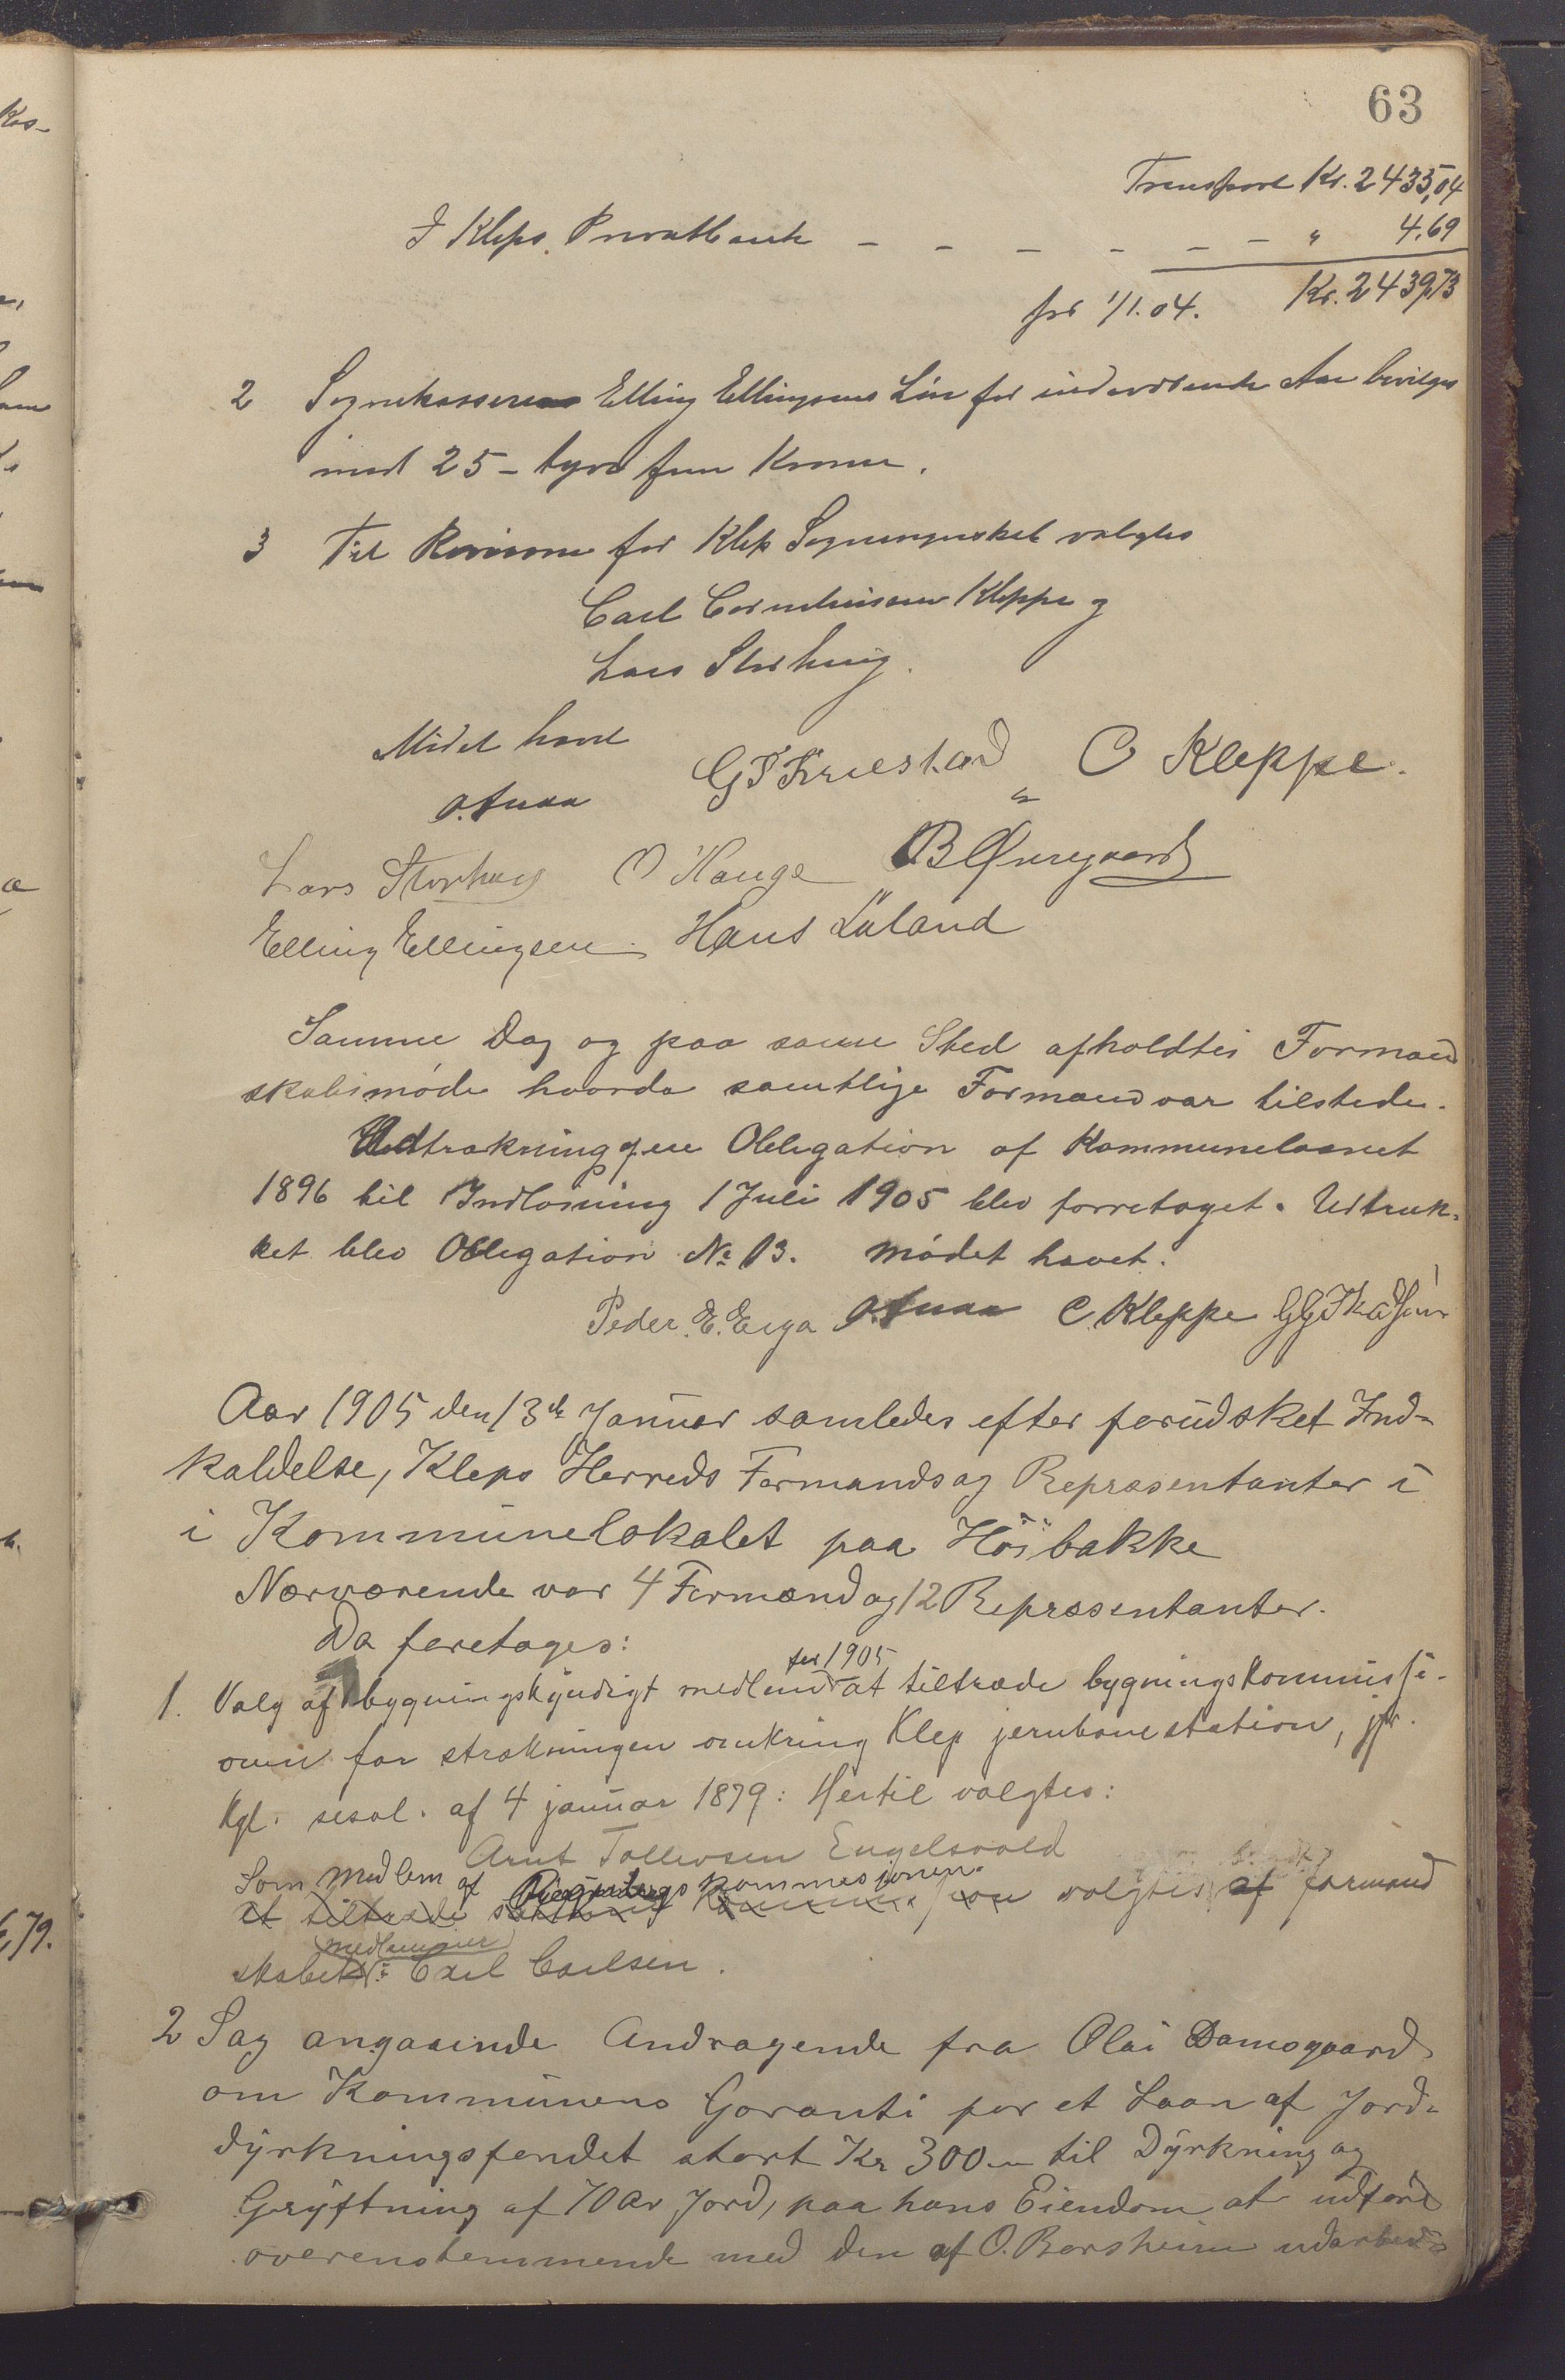 63
Transport Kr. 2435,04
I Kleps Privatbank - - - - - - " 4.69
for 1/1.04. Kr. 2439,73
2 Sognekasserer Elling Ellingsens Løn for indeværende Aar bevilges
med 25 - tyve fem Kroner.
3 Til Revisorer for Klep Sogneregnskab valgtes
Carl Corneliussen Kleppe og
Lars Storhaug.
Mødet hævet
O. Anda G T Friestad C Kleppe.
Lars Storhaug O Hauge B Øxnegaard
Elling Ellingsen. Hans Laland
Samme Dag og paa samme Sted afholdtes Formand
skabsmøde hvorda samtlige Formænd var tilstede.
Udtrækning af en Obligation af Kommunelaanet
1896 til Indløsning 1 Juli 1905 blev forretaget. Udtruk-
ket blev Obligation No 13. Mødet hævet.
Peder. E. Erga O. Anda C. Kleppe
Aar 1905 den 13de Januar samledes efter forudsket Ind-
kaldelse, Kleps Herreds Formænds og Repræsentanter i
i Kommunelokalet paa Høibakke
Nærværende var 4 Formænd og 12 Repræsentanter.
Da foretages:
for 1905
1. Valg af 1 bygningskyndigt medlem at tiltræde bygningskommissi-
onen for strækningen omkring Klep jernbanestation, jfr.
kgl. resol. af 4 januar 1879: Hertil valgtes:
Arnt Tollevsen Engelsvold
Som medlem af Bygningskommesjonen
at tiltræde valgtes af formand
medlemmer
skabets: Carl Carlsen.
2 Sag angaaende Andragende fra Olai Damsgaard
om Kommunens Garanti for et Laan af Jord-
dyrkningsfondet stort Kr 300 til Dyrkning og
Grøftning af 70 ar Jord, paa hans Eiendom at udføre
overenstemmende med den af O. Borsheim udarbeid-